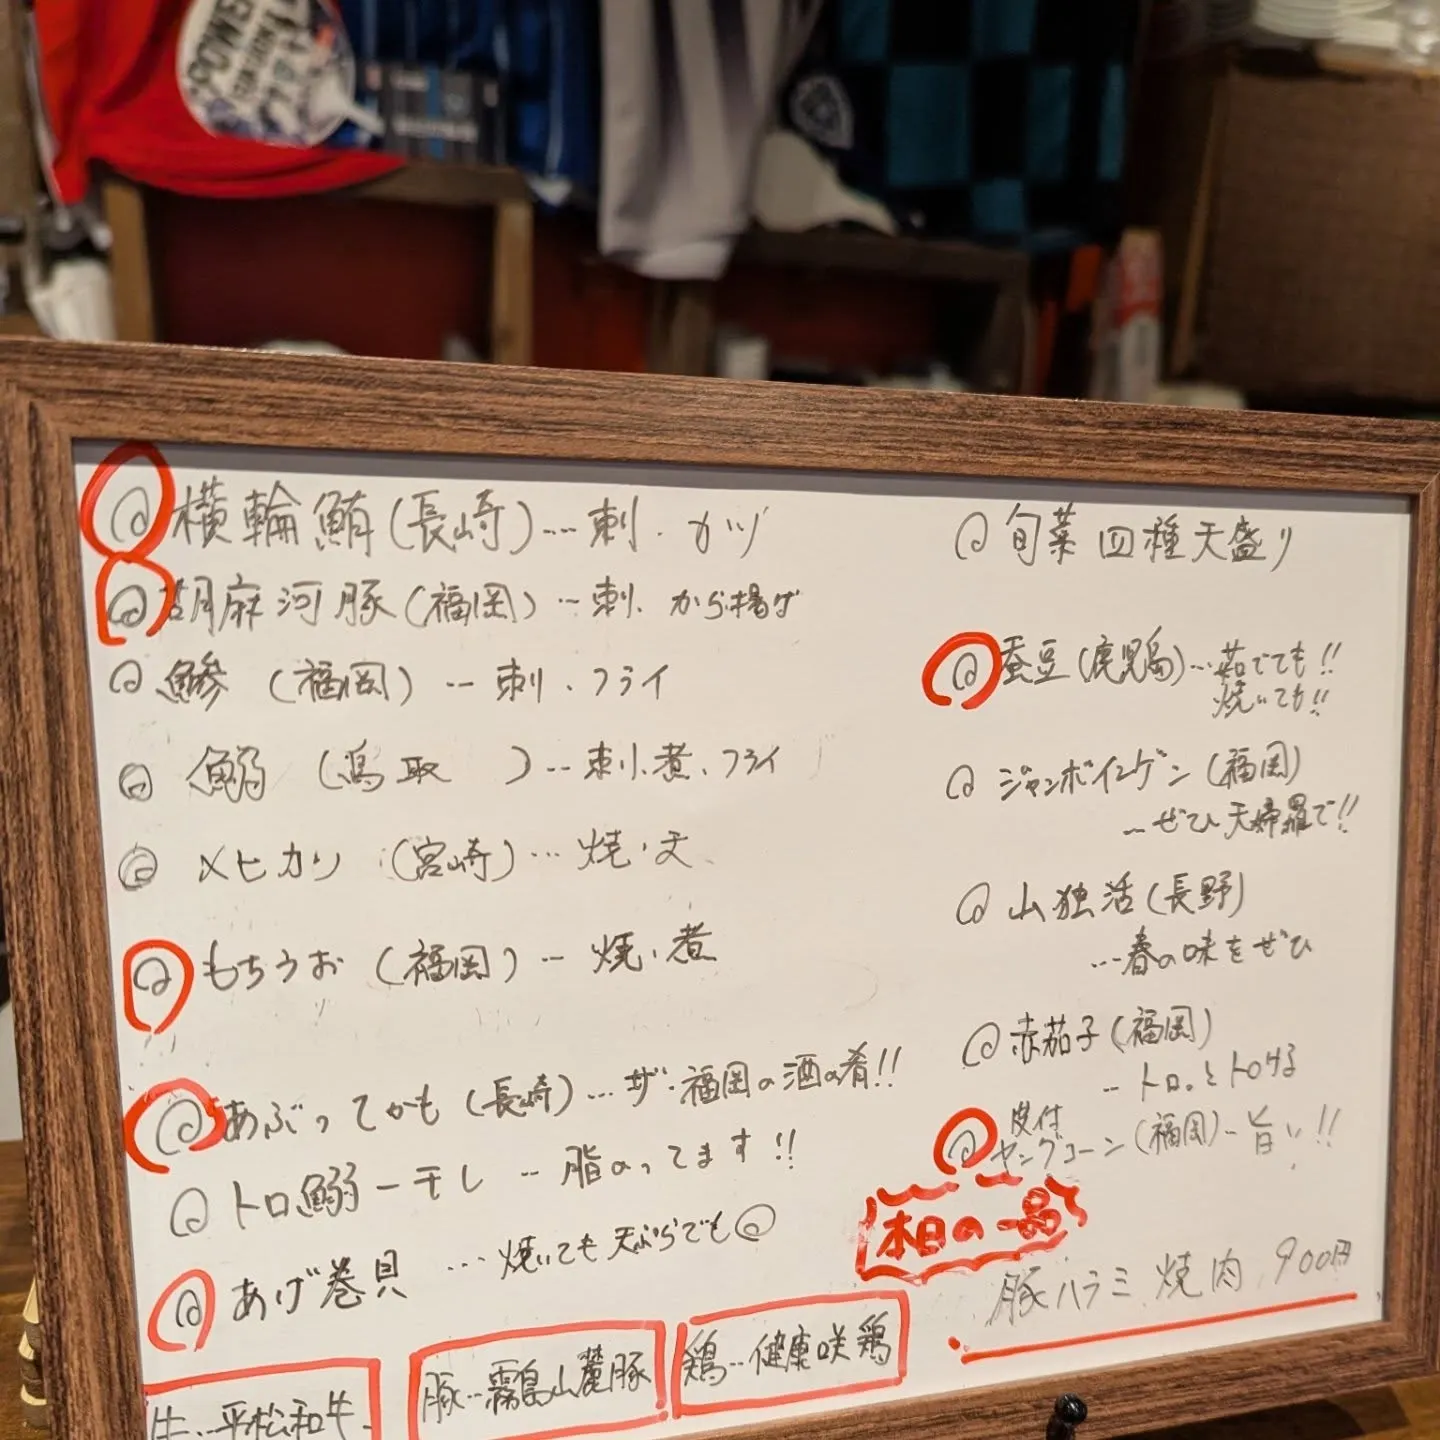 横輪鮪(長崎)…刺.カツ
胡麻河豚(福岡)…刺.から揚げ
鯵(福岡)…刺.フライ
鰯(鳥取)…刺.煮.フライ
メヒカリ(宮崎)…焼.天
もちうお(福岡)…焼.煮
あぶってかも(長崎)…ザ・福岡の酒の肴!!
トロ鰯一干し…脂のってます!!
あげ巻貝…焼いても天ぷらでも◎
牛…平松和牛
豚…霧島山麓豚
鶏…健康咲鶏
旬菜四種天盛り
蚕豆(鹿児島)…茹でても!!
焼いても!!
ジャンボインゲン(福岡)
…ぜひ天婦羅で!!
山独活(長野)
…春の味をぜひ
赤茄子(福岡)
…トロっとトロける
皮付
ヤングコーン(福岡)…旨い!!
本日の一品
豚ハラミ焼肉 900円